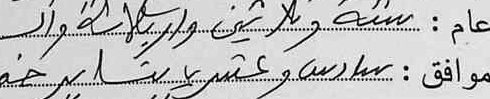 عام : ستة وثلاثين وأربعمائة وألف
موافق : سادس وعشرين